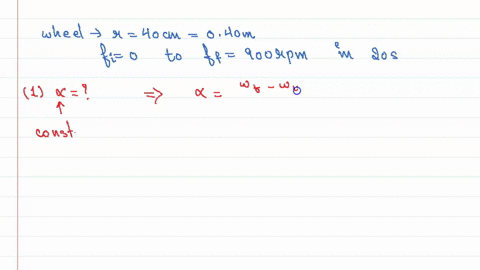 wheel → r = 40cm = 0.40m
fi = 0 to ff = 900rpm in 20s
(1) α = ? ⇒ α = ωf - ωi
↑
const